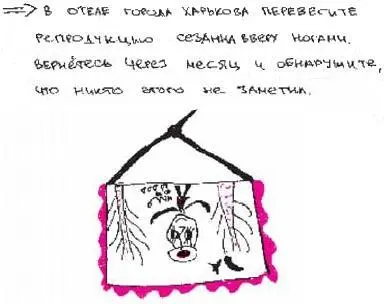 ⇒ В ОТЕЛЕ ГОРОДА ХАРЬКОВА ПЕРЕВЕСИТЕ
РЕПРОДУКЦИЮ СЕЗАННА ВВЕРХ НОГАМИ.
ВЕРНЁТЕСЬ ЧЕРЕЗ МЕСЯЦ И ОБНАРУЖИТЕ,
ЧТО НИКТО ЭТОГО НЕ ЗАМЕТИЛ.